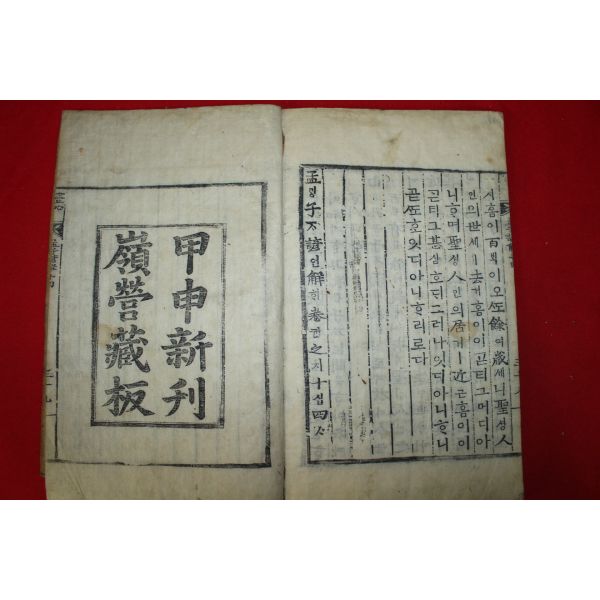 시홈이百ᄇᆡᆨ이오ᄯᅩ餘여歲셰니聖셩人
인의世셰ㅣ去거홈이이곧티그머디아
니ᄒᆞ며聖셩人인의居거ㅣ近근홈이이
곧티그甚심호ᄃᆡ그러나잇디아니ᄒᆞ니
곧ᄯᅩ호잇디아니ᄒᆞ리로다
孟ᄆᆡᆼ子ᄌᆞ諺언解ᄒᆡ卷권之지十십四ᄉᆞ
甲申新刊
嶺營藏板